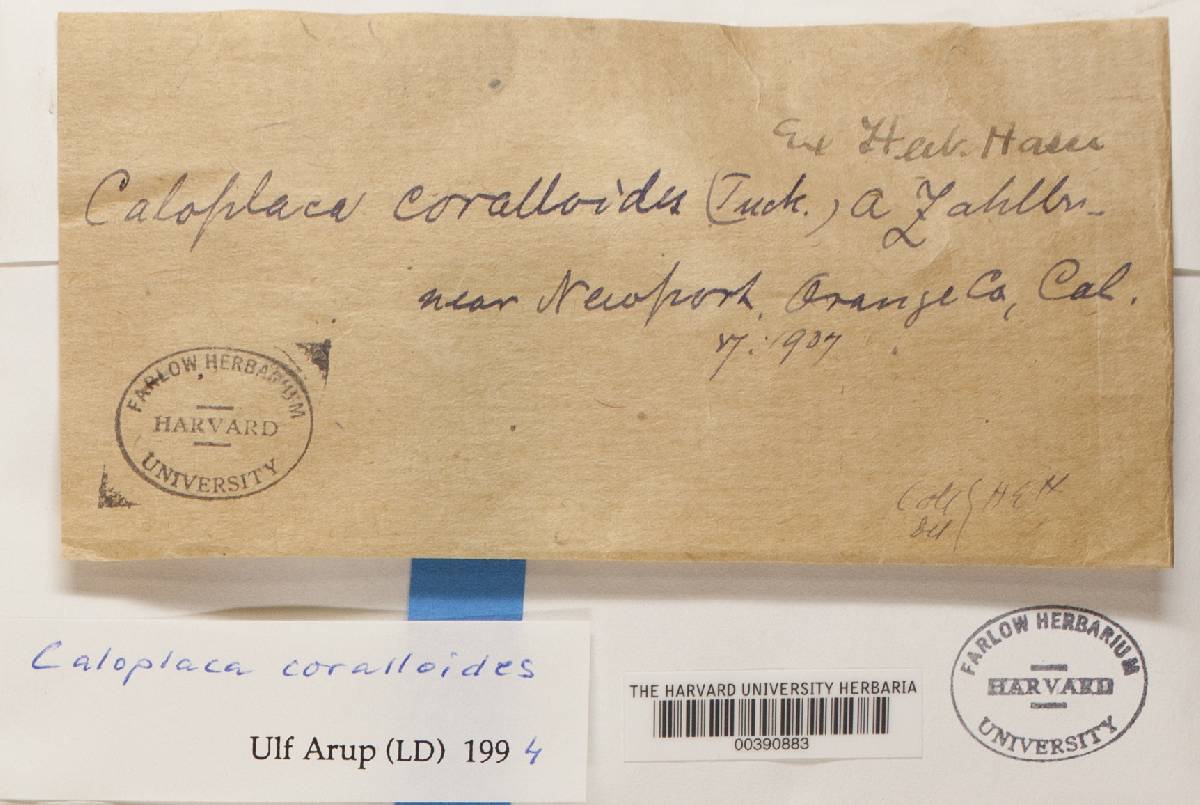 Ex Herb. Hasse
Caloplaca coralloides (Tuck.) A Zahlbr-
near Newport, Orange Co, Cal.
17: 1907
FARLOW HERBARIUM
HARVARD
UNIVERSITY
Coll
Det } H E H
Caloplaca coralloides
Ulf Arup (LD) 1994
THE HARVARD UNIVERSITY HERBARIA
00390883
FARLOW HERBARIUM
HARVARD
UNIVERSITY